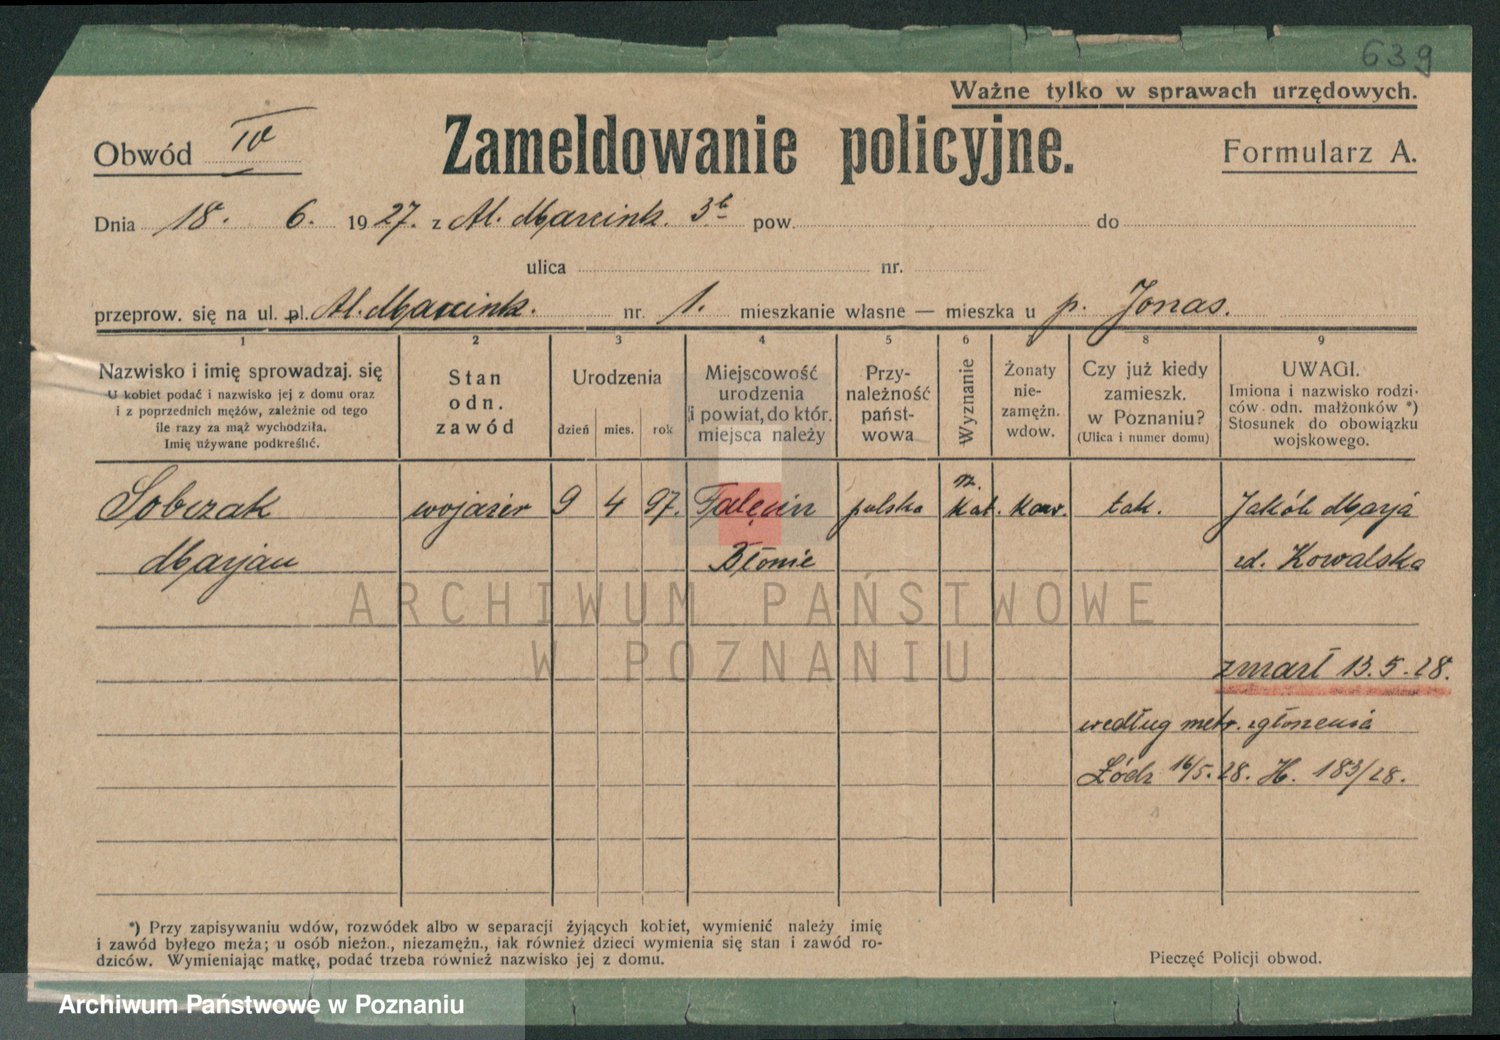 639
Ważne tylko w sprawach urzędowych.
Obwód IV Zameldowanie policyjne. Formularz A.
Dnia 18. 6. 1927. z Al. Marcink. 3b pow. do
ulica nr.
przeprow. się na ul. pl. Al. Marcink. nr. 1. mieszkanie własne — mieszka u p. Jonas.
1 2 3 4 5 6 8 9
Nazwisko i imię sprowadzaj. się
U kobiet podać i nazwisko jej z domu oraz
i z poprzednich mężów, zależnie od tego
ile razy za mąż wychodziła.
Imię używane podkreślić.
Stan
odn.
zawód
Urodzenia
dzień mies. rok
Miejscowość
urodzenia
i powiat, do któr.
miejsca należy
Przy-
należność
państ-
wowa
Wyznanie
Żonaty
nie-
zamężn.
wdow.
Czy już kiedy
zamieszk.
w Poznaniu?
(Ulica i numer domu)
UWAGI.
Imiona i nazwisko rodzi-
ców odn. małżonków *)
Stosunek do obowiązku
wojskowego.
Sobczak 9 4 97. Falęcin polska rz. kat. kaw. tak. Jakób Marja
Marjan Błonie zd. Kowalska
ARCHIWUM PAŃSTWOWE
W POZNANIU
zmarł 13.5.28.
według metr. zgłoszenia
Łódź 16/5.28. H. 183/28.
*) Przy zapisywaniu wdów, rozwódek albo w separacji żyjących kobiet, wymienić należy imię
i zawód byłego męża; u osób nieżon., niezamężn., jak również dzieci wymienia się stan i zawód ro-
dziców. Wymieniając matkę, podać trzeba również nazwisko jej z domu.
Pieczęć Policji obwod.
Archiwum Państwowe w Poznaniu